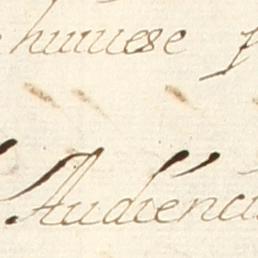 huuiese
Audienci